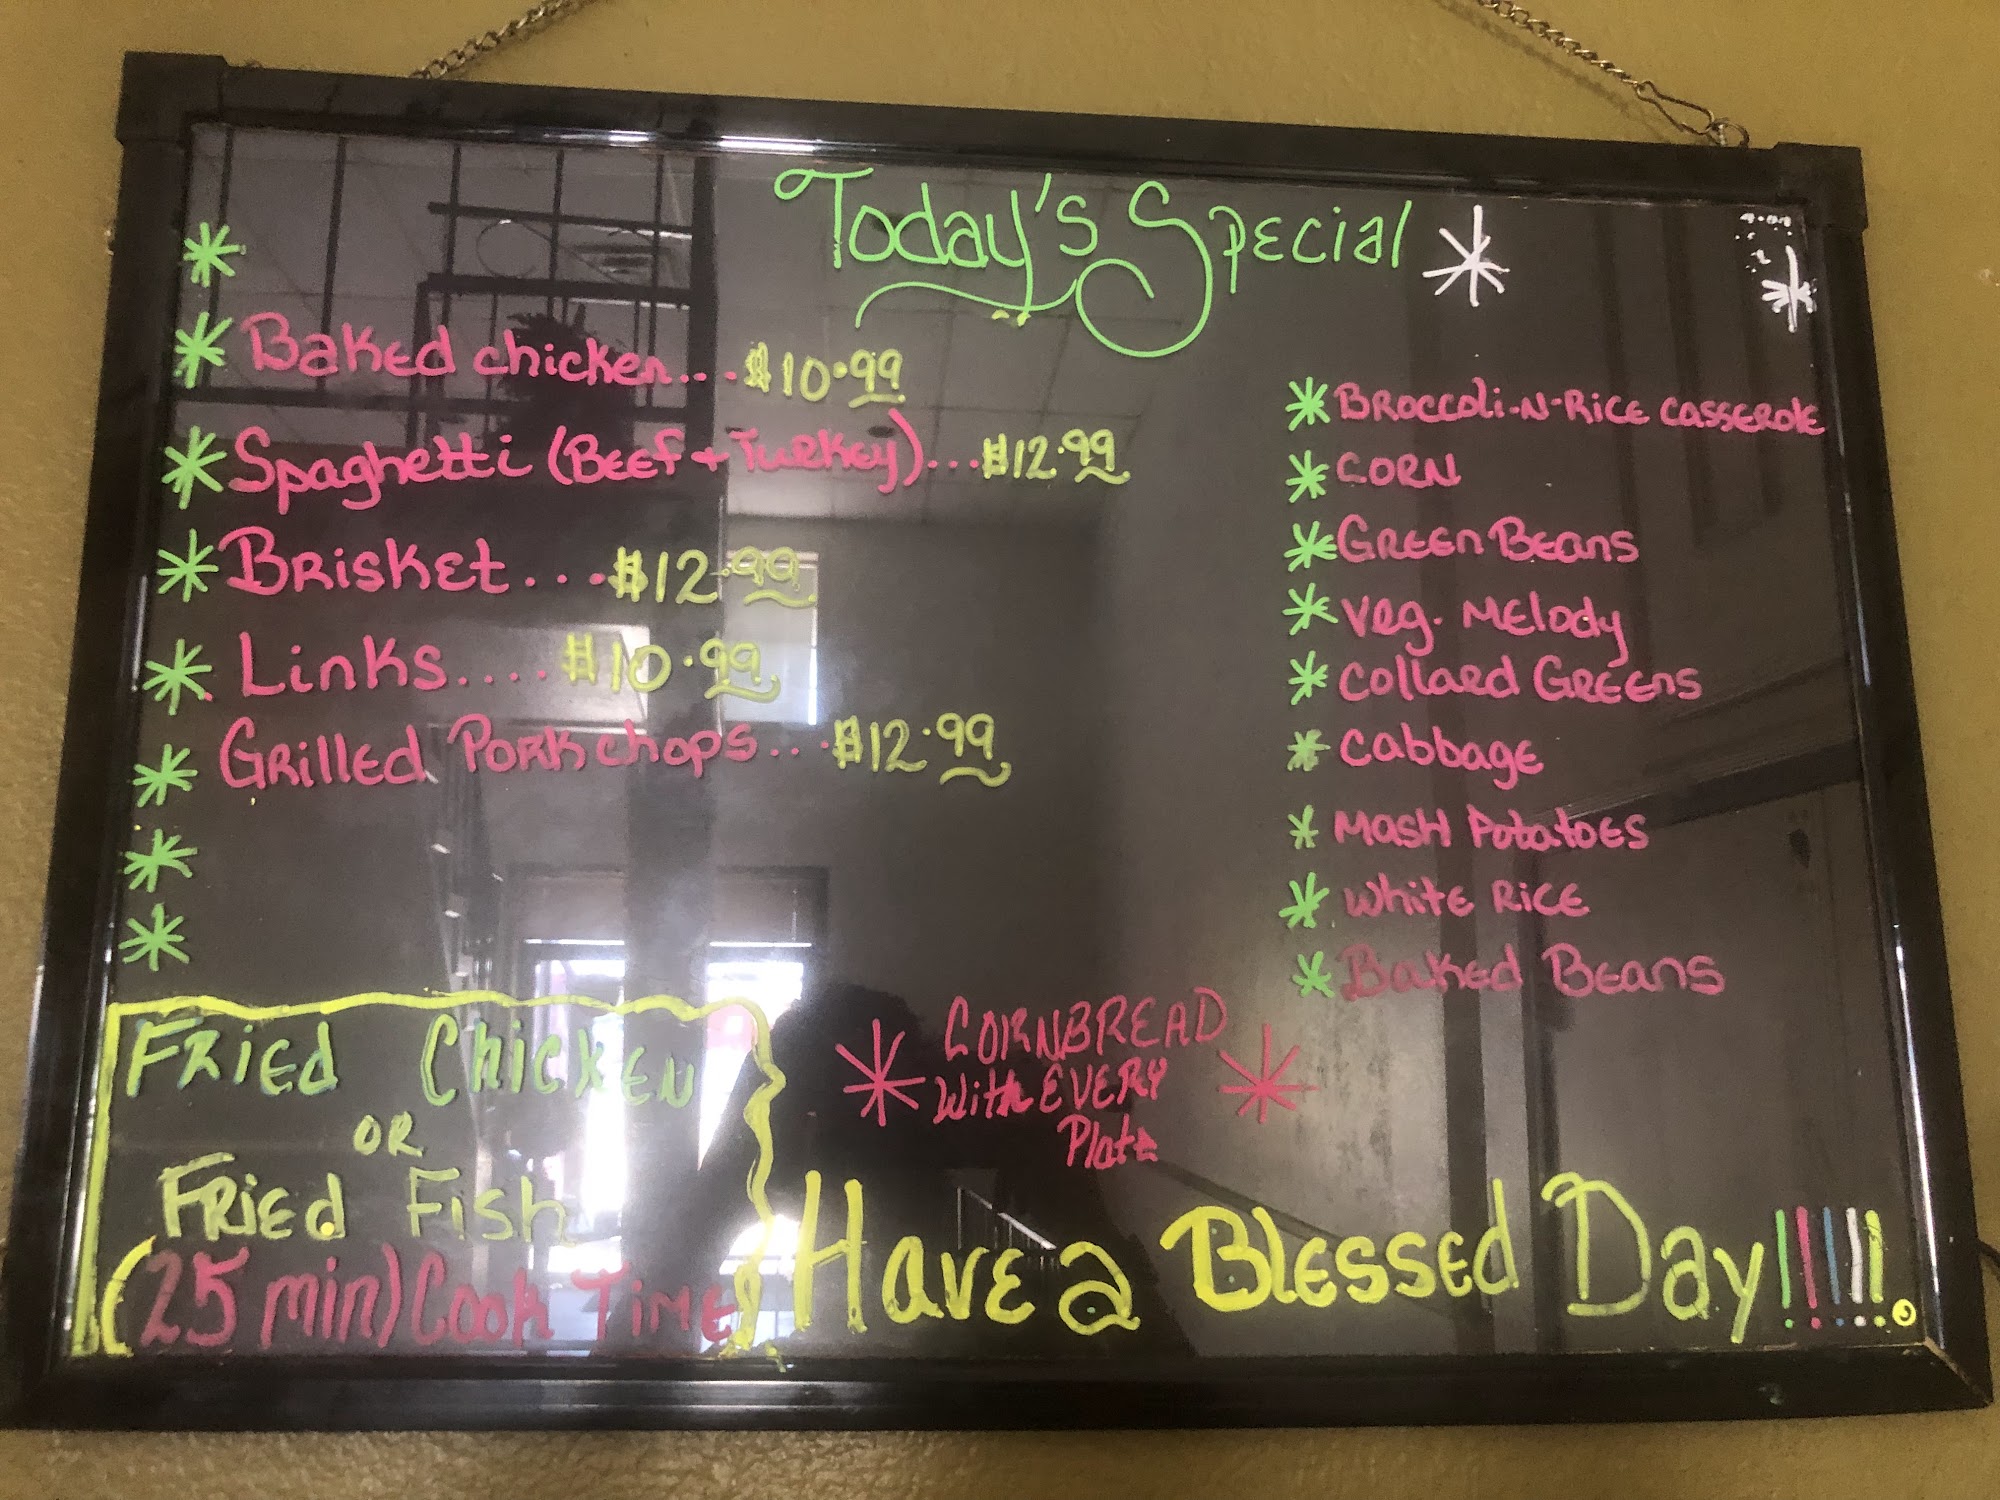 Today's Special
Baked chicken...$10.99
Spaghetti (Beef + Turkey)...$12.99
Brisket....$12.99
Links....$10.99
Grilled Pork chops...$12.99
Broccoli-N-Rice Casserole
Corn
Green Beans
Veg. Melody
Collard Greens
Cabbage
Mash Potatoes
White Rice
Baked Beans
Fried Chicken
OR
Fried Fish
(25 min) Cook Time
CORNBREAD
With EVERY
Plate
Have a Blessed Day!!!!!